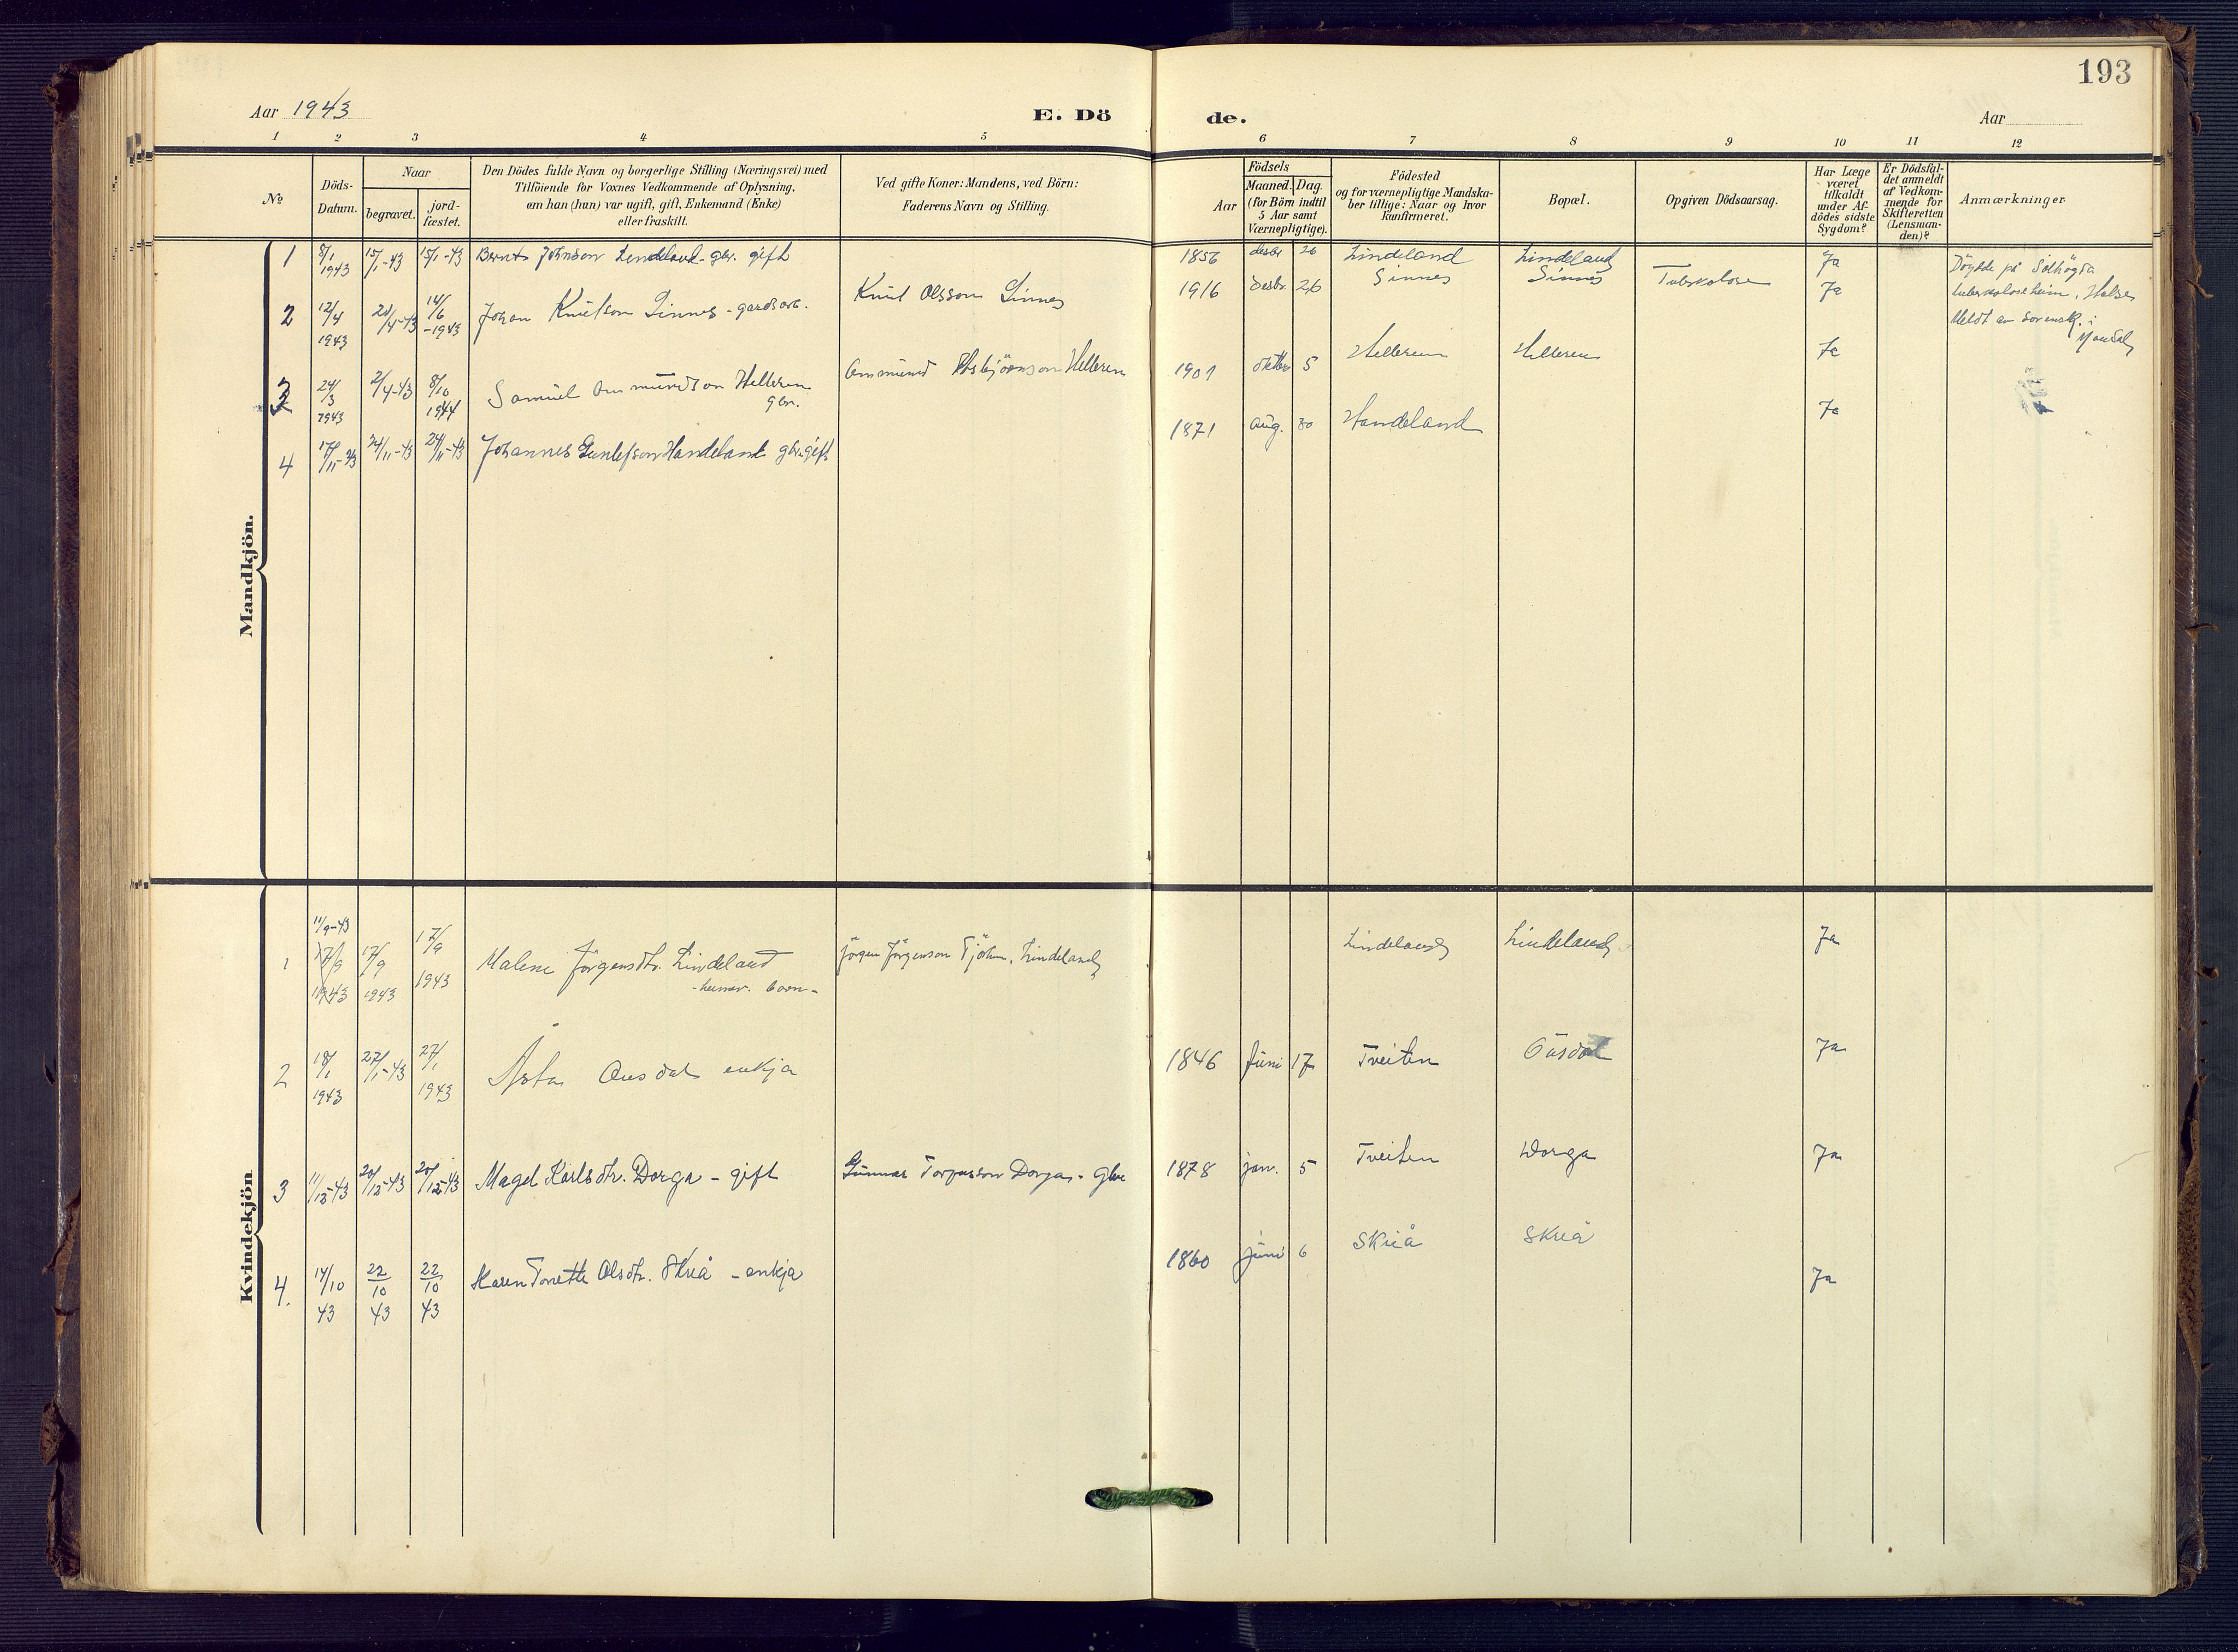 193
Aar 1943
E. Dö
de.
Aar
1 2 3 4 5 6 7 8 9 10 11 12
No
Döds-
Datum.
Naar
begravet.
jord-
fæstet.
Den Dödes fulde Navn og borgerlige Stilling (Næringsvei) med
Tilföiende for Voxnes Vedkommende af Oplysning,
om han (hun) var ugift, gift, Enkemand (Enke)
eller fraskilt.
Ved gifte Koner: Mandens, ved Börn:
Faderens Navn og Stilling.
Födsels
Aar
Maaned.
Dag.
(for Börn indtil
5 Aar samt
Værnepligtige).
Födested
og for værnepligtige Mandska-
ber tillige: Naar og hvor
konfirmeret.
Bopæl.
Opgiven Dödsaarsag.
Har Læge
været
tilkaldt
under Af-
dödes sidste
Sygdom?
Er Dödsfal-
det anmeldt
af Vedkom-
mende for
Skifteretten
(Lensman-
den)?
Anmærkninger
Mandkjön.
1 8/1 1943 15/1-43 15/1-43 Bernt Johnson Lindeland - gbr. gift 1856 desbr 26 Lindeland Lindeland Ja
2 12/4 1943 20/4-43 14/6 -1943 Johan Knutson Sinnes - gardsarb. Knut Olsson Sinnes 1916 desbr. 26 Sinnes Sinnes Tuberkolose Ja
Döydde på Solhögda
tuberkoloseheim, Halse
Meldt av Sorensk. i
Mandal
3 24/3 1943 2/4-43 8/10 1944 Samuel Ommundson Helleren
gbr.
Ommund Asbjörnson Helleren 1901 oktbr 5 Helleren Helleren Ja
4 17/11-43 24/11-43 24/11-43 Johannes Gunlefson Handeland gbr. gift 1871 aug. 30 Handeland Ja
Kvindekjön
1 11/9-43 17/9 1943 17/9 1943 17/9 1943 Malene Jörgensdtr. Lindeland
Jörgen Jörgenson Tjöhm, Lindeland Lindeland Lindeland Ja
2 18/1 1943 27/1-43 27/1 1943 Åsta Ousdal enkja 1846 Juni 17 Tveiten Ousdal Ja
3 11/12-43 20/12-43 20/12-43 Magel Karlsdtr. Dorga - gift Gunnar Torgusson Dorga - gbr 1878 jan. 5 Tveiten Dorga Ja
4. 14/10 43 22/10 43 22/10 43 Karen Tonette Olsdtr. Skreå - enkja 1860 juni 6 Skreå Skreå Ja